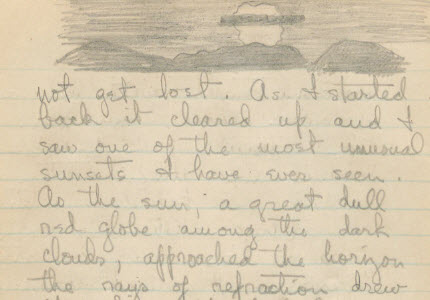 not get lost. As I started
back it cleared up and I
saw one of the most unusual
sunsets I have ever seen.
As the sun, a great dull
red globe among the dark
clouds, approached the horizon
the rays of refraction drew